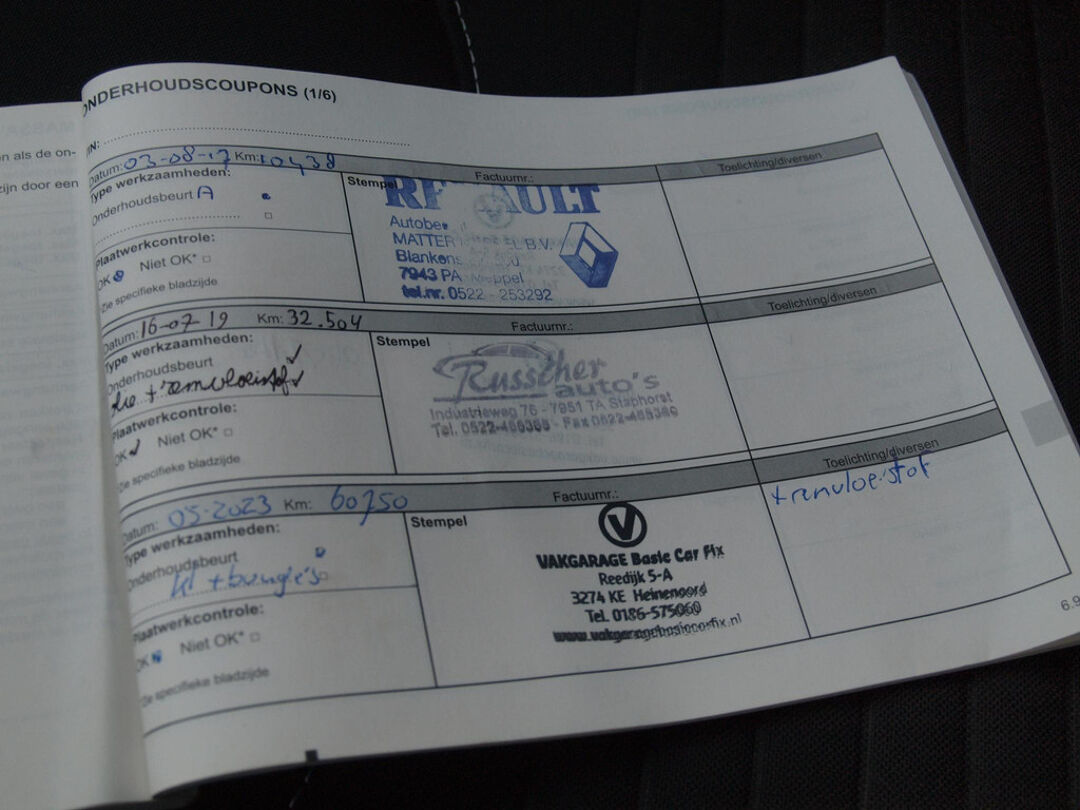 en als de on-
zijn door een
ONDERHOUDSCOUPONS (1/6)
VIN:
Datum: 03-08-17 Km: 10438 Factuurnr.: Toelichting/diversen
Type werkzaamheden: Stempel
Onderhoudsbeurt A
RENAULT
MATTER B.V.
7943 PA Meppel
tel.nr. 0522 - 253292
Plaatwerkcontrole:
OK Niet OK*
Zie specifieke bladzijde
Datum: 16-07-19 Km: 32.504 Factuurnr.: Toelichting/diversen
Type werkzaamheden: Stempel
Onderhoudsbeurt
+ remvloeistof
Russcher
auto's
Industrieweg 76 - 7951 TA Staphorst
Plaatwerkcontrole:
OK Niet OK*
Zie specifieke bladzijde
Datum: 05-2023 Km: 60750 Factuurnr.: Toelichting/diversen
Type werkzaamheden: Stempel + remvloeistof
Onderhoudsbeurt
kl + bougie's
VAKGARAGE Basic Car Fix
Reedijk 5-A
3274 KE Heinenoord
Tel. 0186-575060
www.vakgaragebasiccarfix.nl
Plaatwerkcontrole:
OK Niet OK*
Zie specifieke bladzijde
6.9